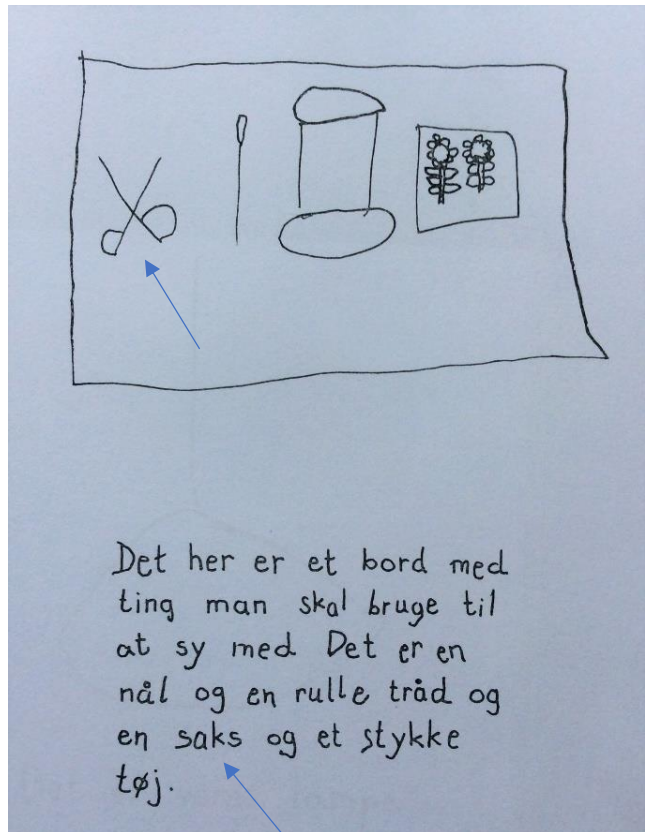 Det her er et bord med
ting man skal bruge til
at sy med Det er en
nål og en rulle tråd og
en saks og et stykke
tøj.